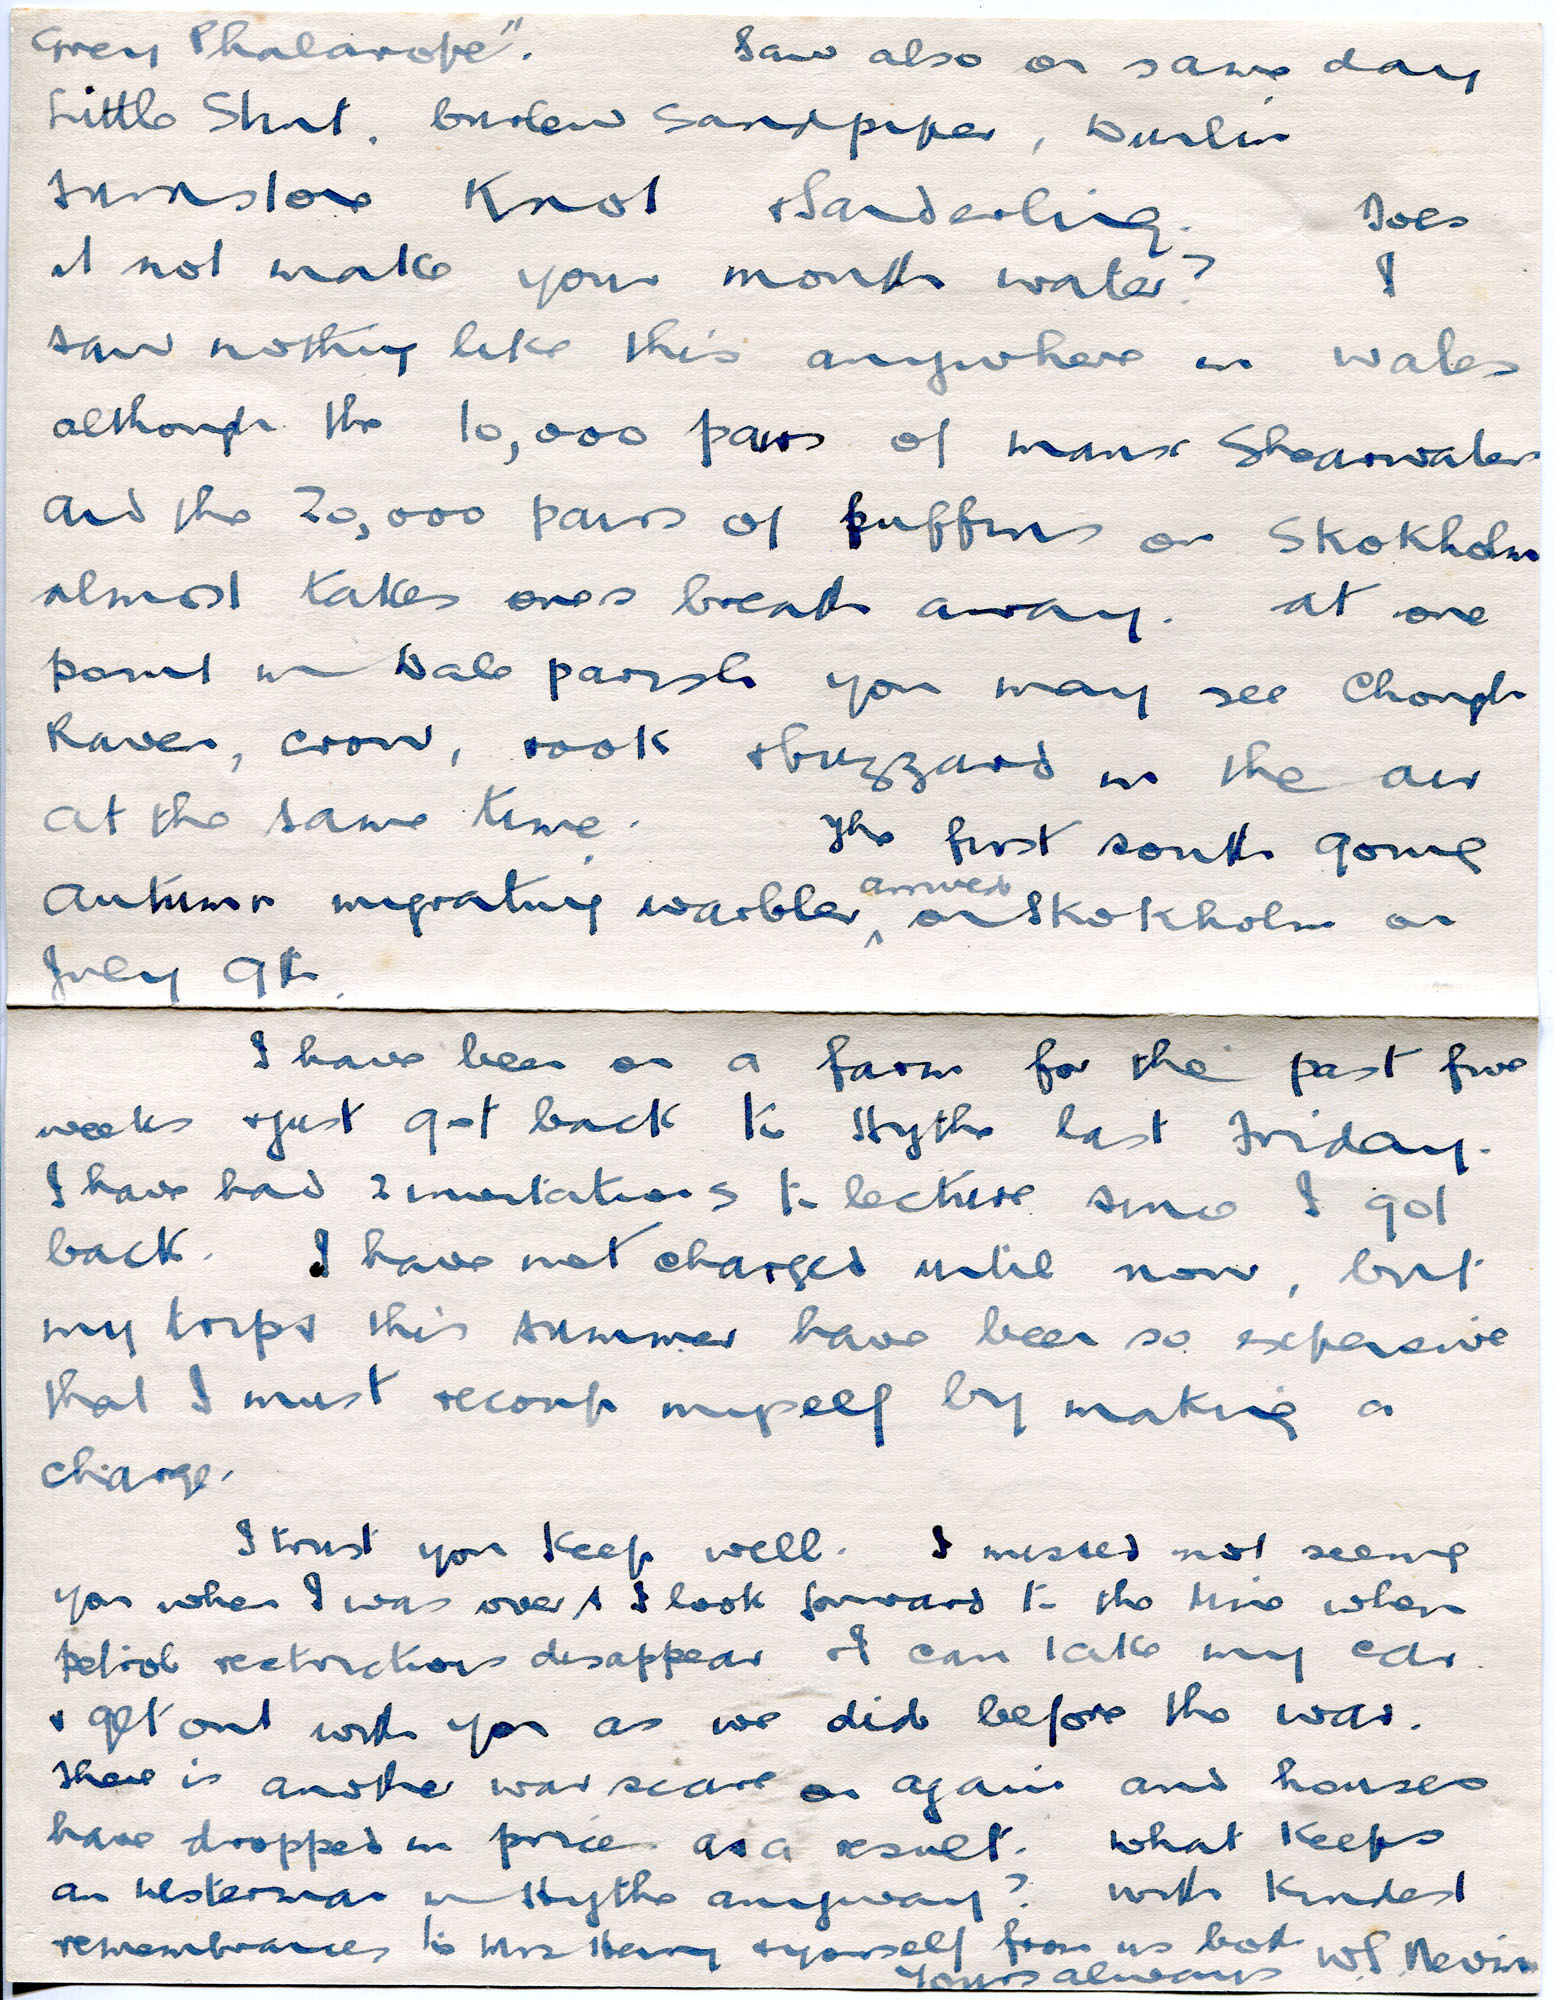 Grey Phalarope". Saw also on same day
Little Stint, Curlew Sandpiper, Dunlin
Turnstone Knot & Sanderling. Does
it not make your mouth water? I
saw nothing like this anywhere in Wales
although the 10,000 pairs of manx Shearwaters
and the 20,000 pairs of puffins on Skokholm
almost takes ones breath away. At one
point in Dale parish you may see Chough
Raven, crow, rook & buzzard in the air
at the same time. The first south going
Autumn migrating warbler arrived on Skokholm on
July 9th.
I have been on a farm for the past five
weeks & just got back to Hythe last Friday.
I have had 2 invitations to lecture since I got
back. I have not charged until now, but
my trips this summer have been so expensive
that I must recoup myself by making a
charge.
I trust you keep well. I missed not seeing
you when I was over & I look forward to the time when
petrol restrictions disappear & I can take my car
& get out with you as we did before the war.
There is another war scare on again and houses
have dropped in price as a result. What keeps
an Ulsterman in Hythe anyway? With kindest
remembrances to Mrs Henry & yourself from us both
Yours always W.S. Nevin